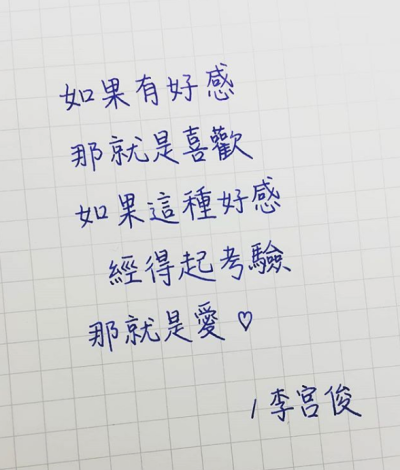 如果有好感
那就是喜歡
如果這種好感
經得起考驗
那就是愛♡
/李宮俊